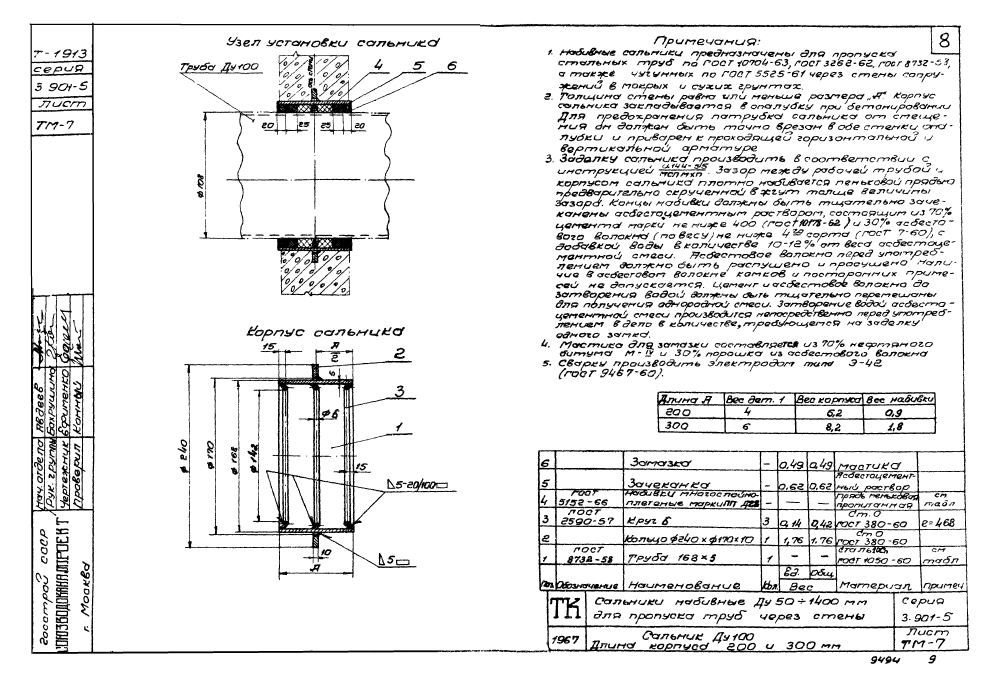 Т-1913
серия
3 901-5
Лист
ТМ-7
Узел установки сальника
Труба Ду100
4 5 6
20 25 25 20
ф 108
Корпус сальника
15 А
2
6
3
ф 6
1
15
ф 240
ф 170
ф 168
ф 142
5-20/100
5
10
А
8
Примечания:
1. Набивные сальники предназначены для пропуска
стальных труб по ГОСТ 10704-63, ГОСТ 3262-62, ГОСТ 8732-53,
а также чугунных по ГОСТ 5525-61 через стены сопру-
жений в мокрых и сухих грунтах.
2. Толщина стены равна или меньше размера „А" Корпус
сальника закладывается в опалубку при бетонировании
Для предохранения патрубка сальника от смеще-
ния он должен быть точно врезан в обе стенки опа-
лубки и приварен к проходящей горизонтальной и
вертикальной арматуре
3. Заделку сальника производить в соответствии с
инструкцией МСПМХП. Зазор между рабочей трубой и
корпусом сальника плотно набивается пеньковой прядью
предварительно скрученной в жгут толще величины
зазора. Концы набивки должны быть тщательно заче-
канены асбестоцементным раствором, состоящим из 70%
цемента марки не ниже 400 (ГОСТ 10178-62) и 30% асбесто-
вого волокна (по весу) не ниже 4го сорта (ГОСТ 7-60), с
добавкой воды в количестве 10-12% от веса асбестоце-
ментной смеси. Асбестовое волокно перед употреб-
лением должно быть распушено и просушено Нали-
чие в асбестовом волокне комков и посторонних приме-
сей не допускается. Цемент и асбестовое волокно до
затворения водой должны быть тщательно перемешаны
для получения однородной смеси. Затворение водой асбесто-
цементной смеси производится непосредственно перед употреб-
лением в дело в количестве, требующемся на заделку
одного замка.
4. Мастика для замазки составляется из 70% нефтяного
битума М-IV и 30% порошка из асбестового волокна
5. Сварку производить электродом типа Э-42
(ГОСТ 9467-60).
Длина А Вес дет. 1 Вес корпуса Вес набивки
200 4 6,2 0,9
300 6 8,2 1,8
6 Замазка - 0,49 0,49 мастика
5 Зачеканка - 0,62 0,62 Асбестоцемент-ный раствор
4 ГОСТ 5152-66 Набивки многослойно-плетеные марки ПП — — Прядь пеньковая пропитанная см табл
3 ГОСТ 2590-57 Круг 6 3 0,14 0,42 Ст. 0 ГОСТ 380-60 ℓ=468
2 Кольцо ф240×ф170×10 1 1,76 1.76 Ст 0 ГОСТ 380-60
1 ГОСТ 8732-58 Труба 168×5 1 - - ГОСТ 1050-60 см табл
Поз. Обозначение Наименование Кол. Ед. Общ. Вес Материал Примеч.
ТК Сальники набивные Ду 50÷1400 мм
для пропуска труб через стены
Серия
3.901-5
1967 Сальник Ду100
Длина корпуса 200 и 300 мм
Лист
ТМ-7
9494 9
Нач. отдела Авдеев
Рук. группы Вахрушина
Чертежник Ефименко
Проверил Конный
Госстрой СССР
СОЮЗВОДОКАНАЛПРОЕКТ
г. Москва